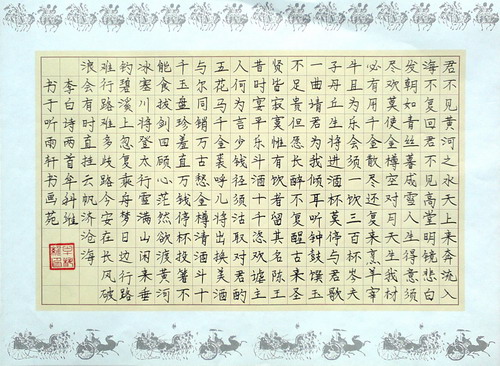 君不见黄河之水天上来奔流入
海不复回君不见高堂明镜悲白
发朝如青丝暮成雪人生得意须
尽欢莫使金樽空对月天生我材
必有用千金散尽还复来烹羊宰
牛且为乐会须一饮三百杯岑夫
子丹丘生将进酒杯莫停与君歌
一曲请君为我倾耳听钟鼓馔玉
不足贵但愿长醉不复醒古来圣
贤皆寂寞惟有饮者留其名陈王
昔时宴平乐斗酒十千恣欢谑主
人何为言少钱径须沽取对君酌
五花马千金裘呼儿将出换美酒
与尔同销万古愁金樽清酒斗十
千玉盘珍羞直万钱停杯投箸不
能食拔剑四顾心茫然欲渡黄河
冰塞川将登太行雪满山闲来垂
钓碧溪上忽复乘舟梦日边行路
难行路难多歧路今安在长风破
浪会有时直挂云帆济沧海
李白诗两首牟科维
书于听雨轩书画苑